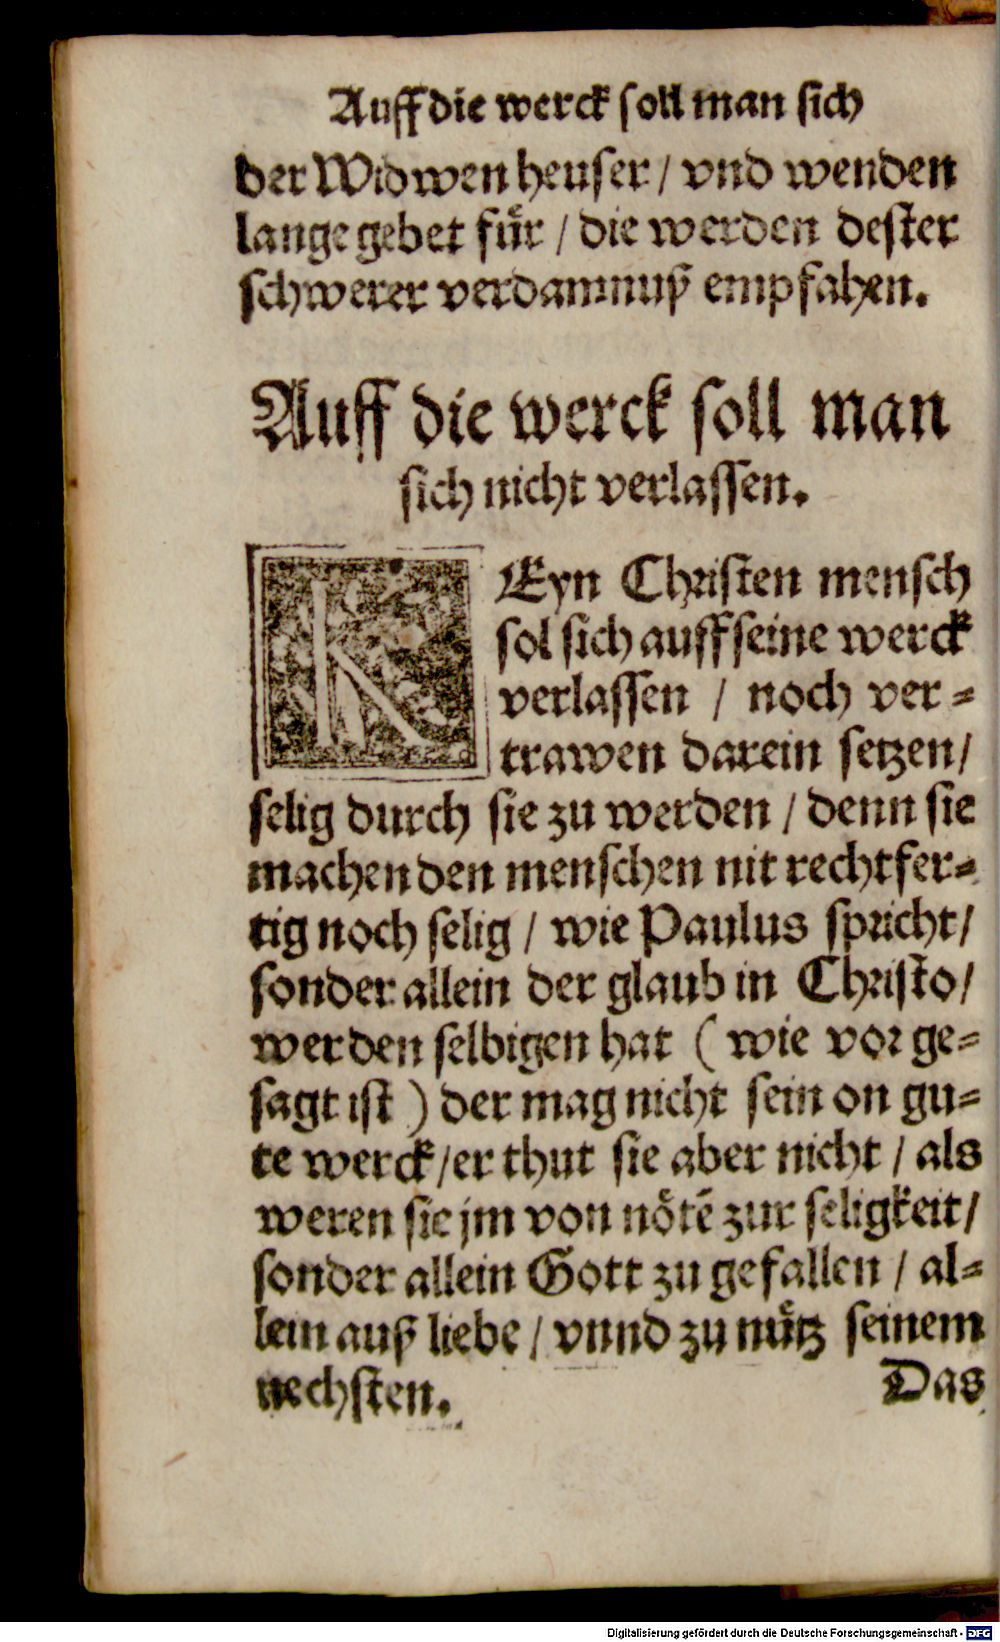 Auff die werck soll man sich
der Widwen heuser / vnd wenden
lange gebet fuͤr / die werden dester
schwerer verdamnuß empfahen.
Auff die werck soll man
sich nicht verlassen.
KEyn Christen mensch
sol sich auff seine werck
verlassen / noch ver=
trawen darein setzen /
selig durch sie zu werden / denn sie
machen den menschen nit rechtfer=
tig noch selig / wie Paulus spricht /
sonder allein der glaub in Christo /
wer den selbigen hat ( wie vor ge=
sagt ist ) der mag nicht sein on gu=
te werck / er thut sie aber nicht / als
weren sie jm von noͤtē zur seligkeit /
sonder allein Gott zu gefallen / al=
lein auß liebe / vnnd zu nuͤtz seinem
nechsten.
Das
Digitalisierung gefördert durch die Deutsche Forschungsgemeinschaft - DFG